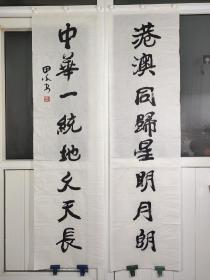 港澳同歸星明月朗
中華一統地久天長